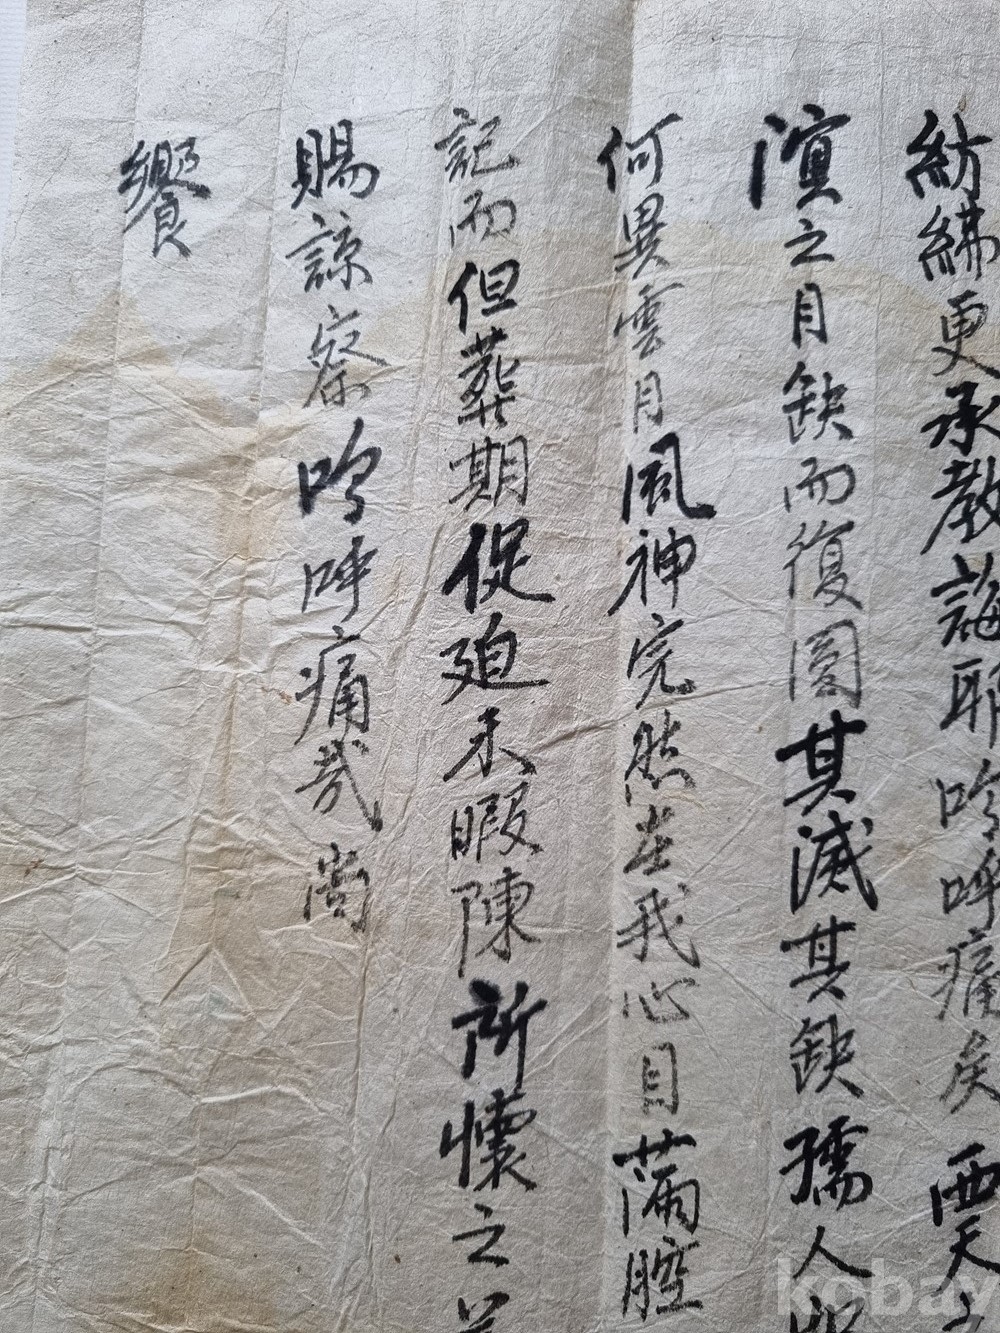 紡綈更承教誨耶吟呼痛矣 西天
之月缺而復圓其減其缺孺人
何異雲月風神完然在我心目滿腔
記而但葬期促迫未暇陳所懷之
賜諒察吟呼痛哉 尙
饗
kobay